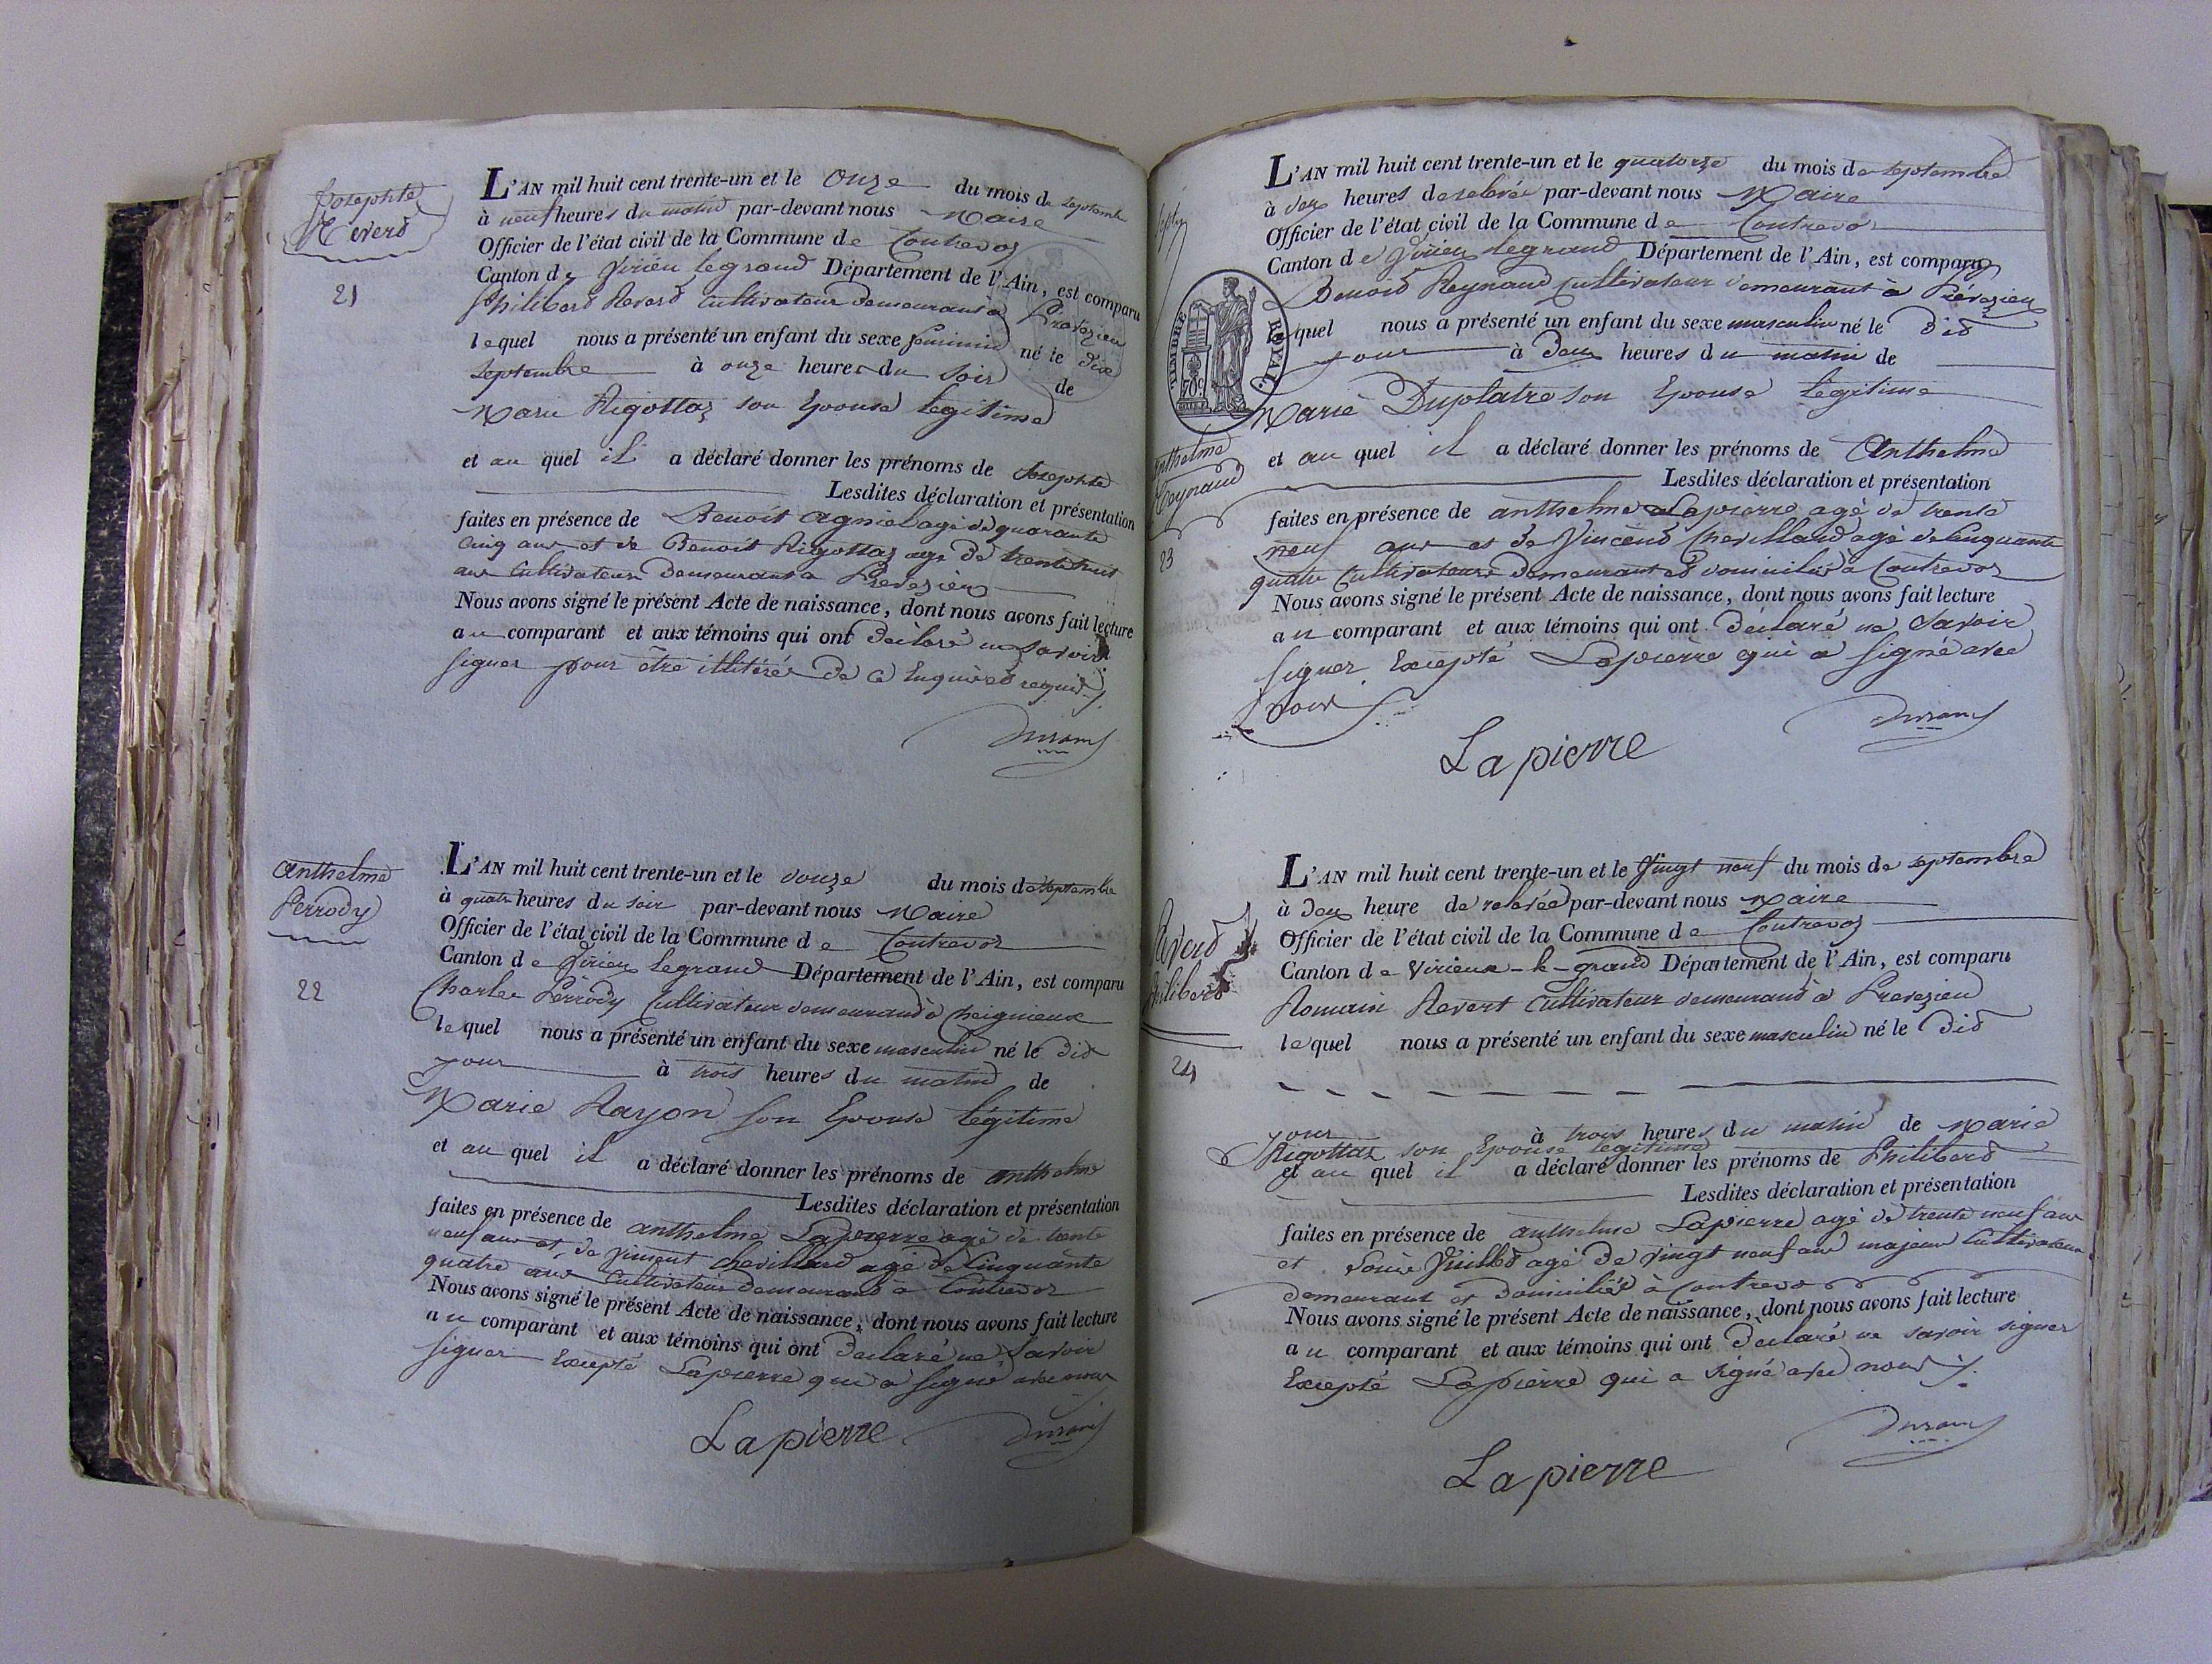 Josephte
Reverd
21
L'AN mil huit cent trente-un et le onze du mois de septembre
à neuf heures du matin par-devant nous Maire
Officier de l'état civil de la Commune de Contrevoz
Canton de Virieu legrand Département de l'Ain, est comparu
Philibert Reverd Cultivateur demeurant à Prevezieu
lequel nous a présenté un enfant du sexe feminin né le dix
septembre à onze heures du soir de
Marie Rigottaz son Epouse legitime
et au quel il a déclaré donner les prénoms de Josephte
Lesdites déclaration et présentation
faites en présence de Benoit Agniel agé de quarante
cinq ans et de Benoit Rigottaz agé de trente huit
ans Cultivateurs demeurant a Prevezieu
Nous avons signé le présent Acte de naissance, dont nous avons fait lecture
au comparant et aux témoins qui ont déclaré ne savoir
signer pour être illitérés de ce Enquis et requis
Anthelme
Perrody
22
L'AN mil huit cent trente-un et le douze du mois de septembre
à quatre heures du soir par-devant nous Maire
Officier de l'état civil de la Commune de Contrevoz
Canton de Virieu legrand Département de l'Ain, est comparu
Charle Perrody Cultivateur demeurand à Cheignieux
lequel nous a présenté un enfant du sexe masculin né le dit
jour à trois heures du matin de
Marie Rayon son Epouse légitime
et au quel il a déclaré donner les prénoms de anthelme
Lesdites déclaration et présentation
faites en présence de anthelme Lapierre agé de trente
neuf ans et de Vincent Chevilland agé de Cinquante
quatre ans Cultivateurs demeurand à Contrevoz
Nous avons signé le présent Acte de naissance, dont nous avons fait lecture
au comparant et aux témoins qui ont declaré ne savoir
signer Excepté Lapierre qui a signé avec nous
Lapierre
L'AN mil huit cent trente-un et le quatorze du mois de septembre
à deux heures de relevée par-devant nous Maire
Officier de l'état civil de la Commune de Contrevoz
Canton de Virieu legrand Département de l'Ain, est comparu
Benoid Reynaud Cultivateur demeurant à Prévezieu
quel nous a présenté un enfant du sexe masculin né le dit
jour à deux heures du matin de
Marie Duplatre son Epouse légitime
TIMBRE ROYAL
70 c.
Anthelme
Reynaud
23
et au quel il a déclaré donner les prénoms de Anthelme
Lesdites déclaration et présentation
faites en présence de anthelme Lapierre agé de trente
neuf ans et de Vincend Chevilland agé de Cinquante
quatre Cultivateurs demeurant et domicilié à Contrevoz
Nous avons signé le présent Acte de naissance, dont nous avons fait lecture
au comparant et aux témoins qui ont déclaré ne savoir
signer Excepté Lapierre qui a signé avec
nous
Lapierre
Reverd
Philiberd
24
L'AN mil huit cent trente-un et le Vingt neuf du mois de septembre
à deux heure de relevée par-devant nous Maire
Officier de l'état civil de la Commune de Contrevoz
Canton de Virieux-le-grand Département de l'Ain, est comparu
Romain Revert Cultivateur demeurand à Prevezieu
lequel nous a présenté un enfant du sexe masculin né le dit
jour à trois heures du matin de Marie
Rigottaz son Epouse legitime
et au quel il a déclaré donner les prénoms de Philiberd
Lesdites déclaration et présentation
faites en présence de anthelme Lapierre agé de trente neuf ans
et Louis agé de vingt neuf ans majeur Cultivateurs
demeurant et domiciliés à Contrevoz
Nous avons signé le présent Acte de naissance, dont nous avons fait lecture
au comparant et aux témoins qui ont déclaré ne savoir signer
Excepté Lapierre qui a signé avec nous
Lapierre